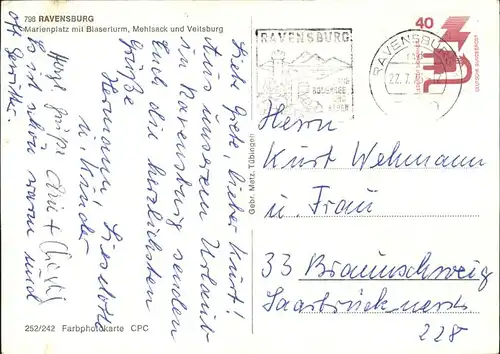 798 RAVENSBURG
Marienplatz mit Blaserturm, Mehlsack und Veitsburg
Liebe Grete, lieber Kurt!
Aus unserem Urlaub
in Ravensburg senden
Euch die herzlichsten
Grüße
Hermann, Lieselotte
u. Kinder
Herzl. Grüße
Es ist schön warm und
oft Gewitter.
252/242 Farbphotokarte CPC
Gebr. Metz, Tübingen
RAVENSBURG
BODENSEE
RAVENSBURG
40
DEUTSCHE BUNDESPOST
Herrn
Kurt Wehmann
u. Frau
33 Braunschweig
Saarbrückenerstr.
228